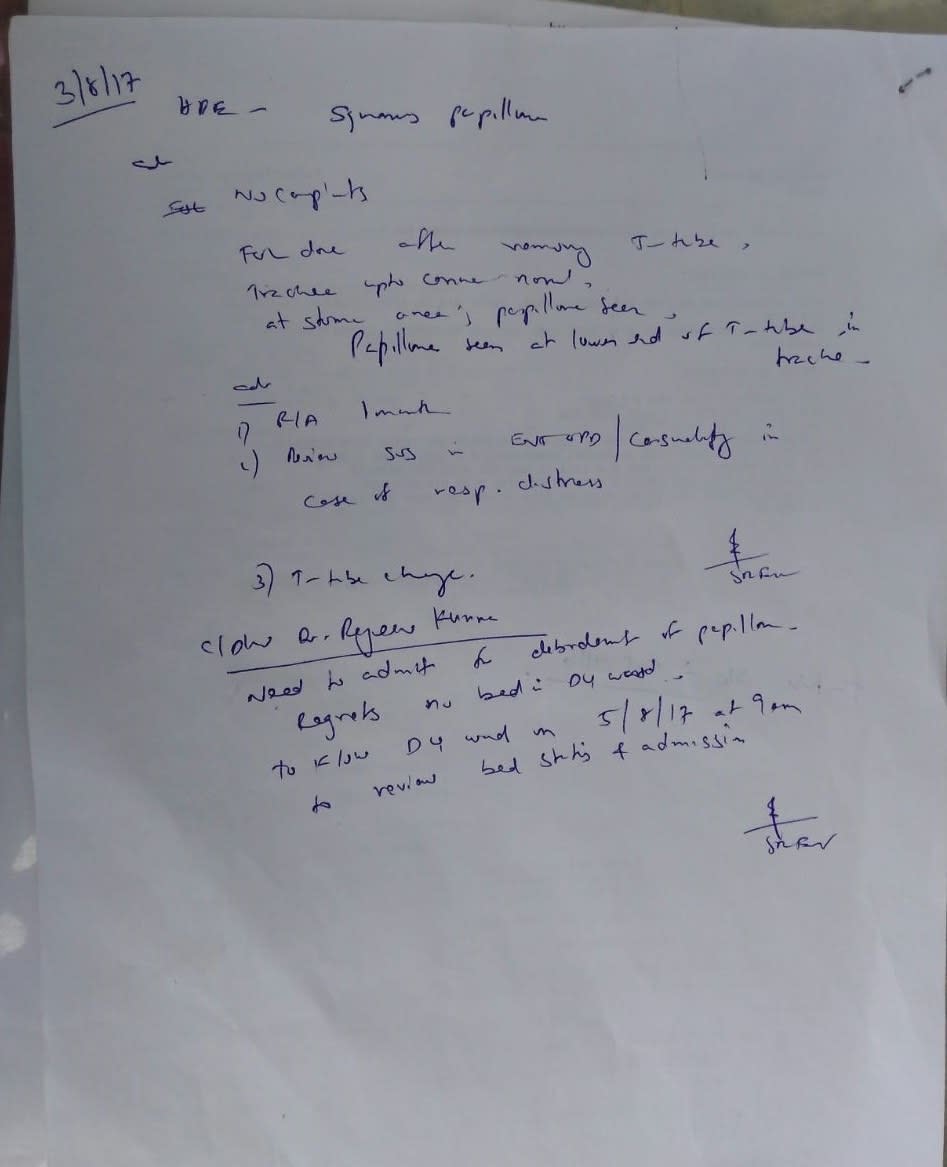 3/8/17
HPE - Squamous papilloma
No complaints
done after removing T-tube,
Trachea upto carina normal,
at stoma area; papilloma seen,
Papilloma seen at lower end of T-tube in
trache
adv
1) R/A 1 month
2) Review SOS in ENT OPD/Casualty in
case of resp. distress
3) T-tube change.
Need to admit for debridement of papilloma.
Regrets no bed in D4 ward.
D4 ward on 5/8/17 at 9am
to review bed status & admission